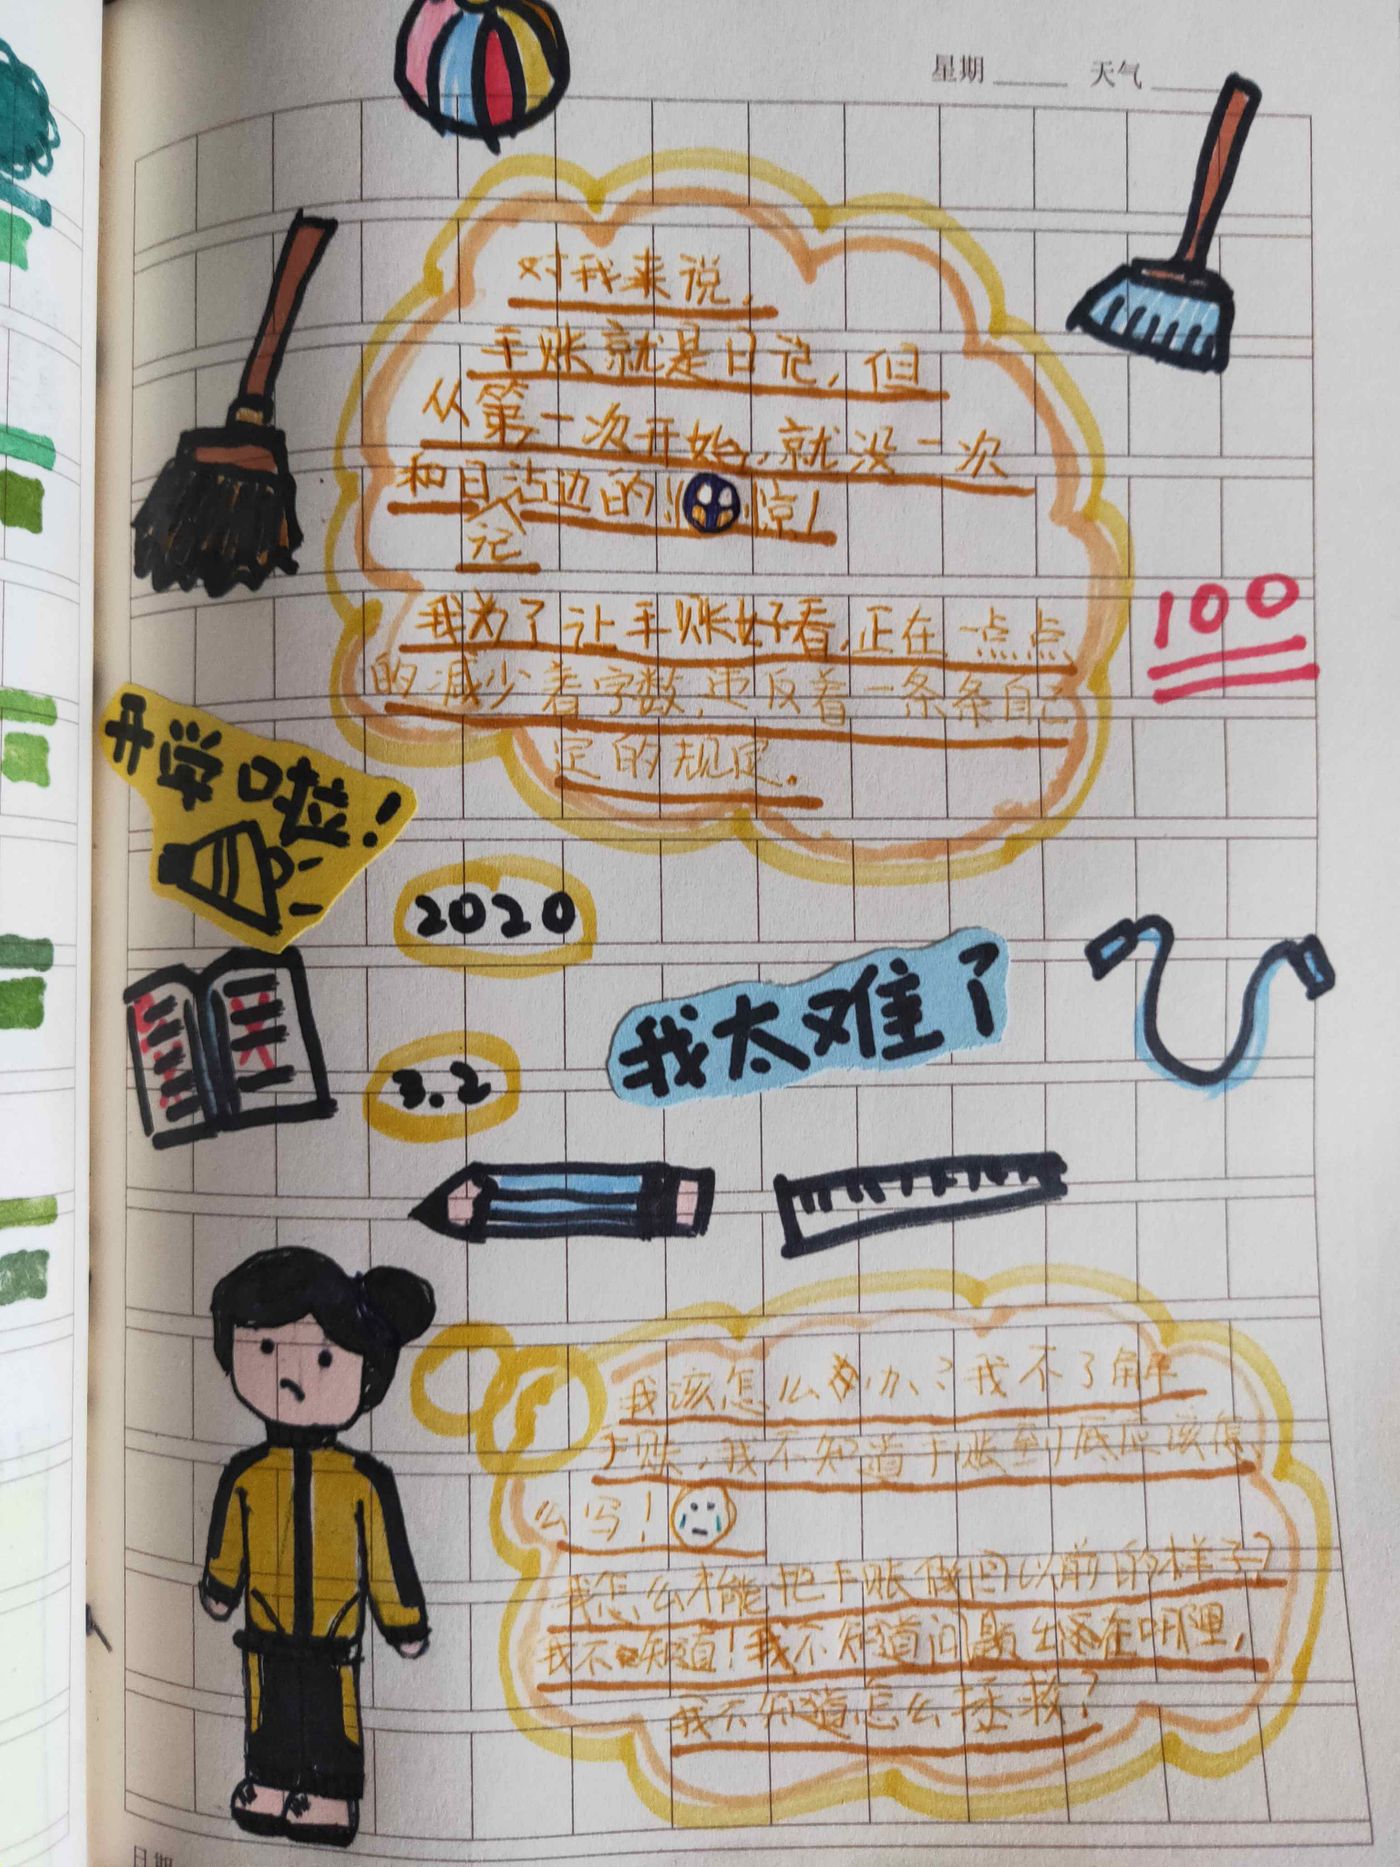 星期 天气
对我来说，
手账就是日记，但
从第一次开始，就没一次
和日记沾边的！惊！
我为了让手账好看，正在一点点
的减少着字数，违反着一条条自己
定的规定。
100
开学啦！
2020
我太难了
3.2
我该怎么办？我不了解
手账，我不知道手账到底应该怎
么写！
我怎么才能把手账做回以前的样子？
我不知道！我不知道问题出在哪里，
我不知道怎么拯救？
日期